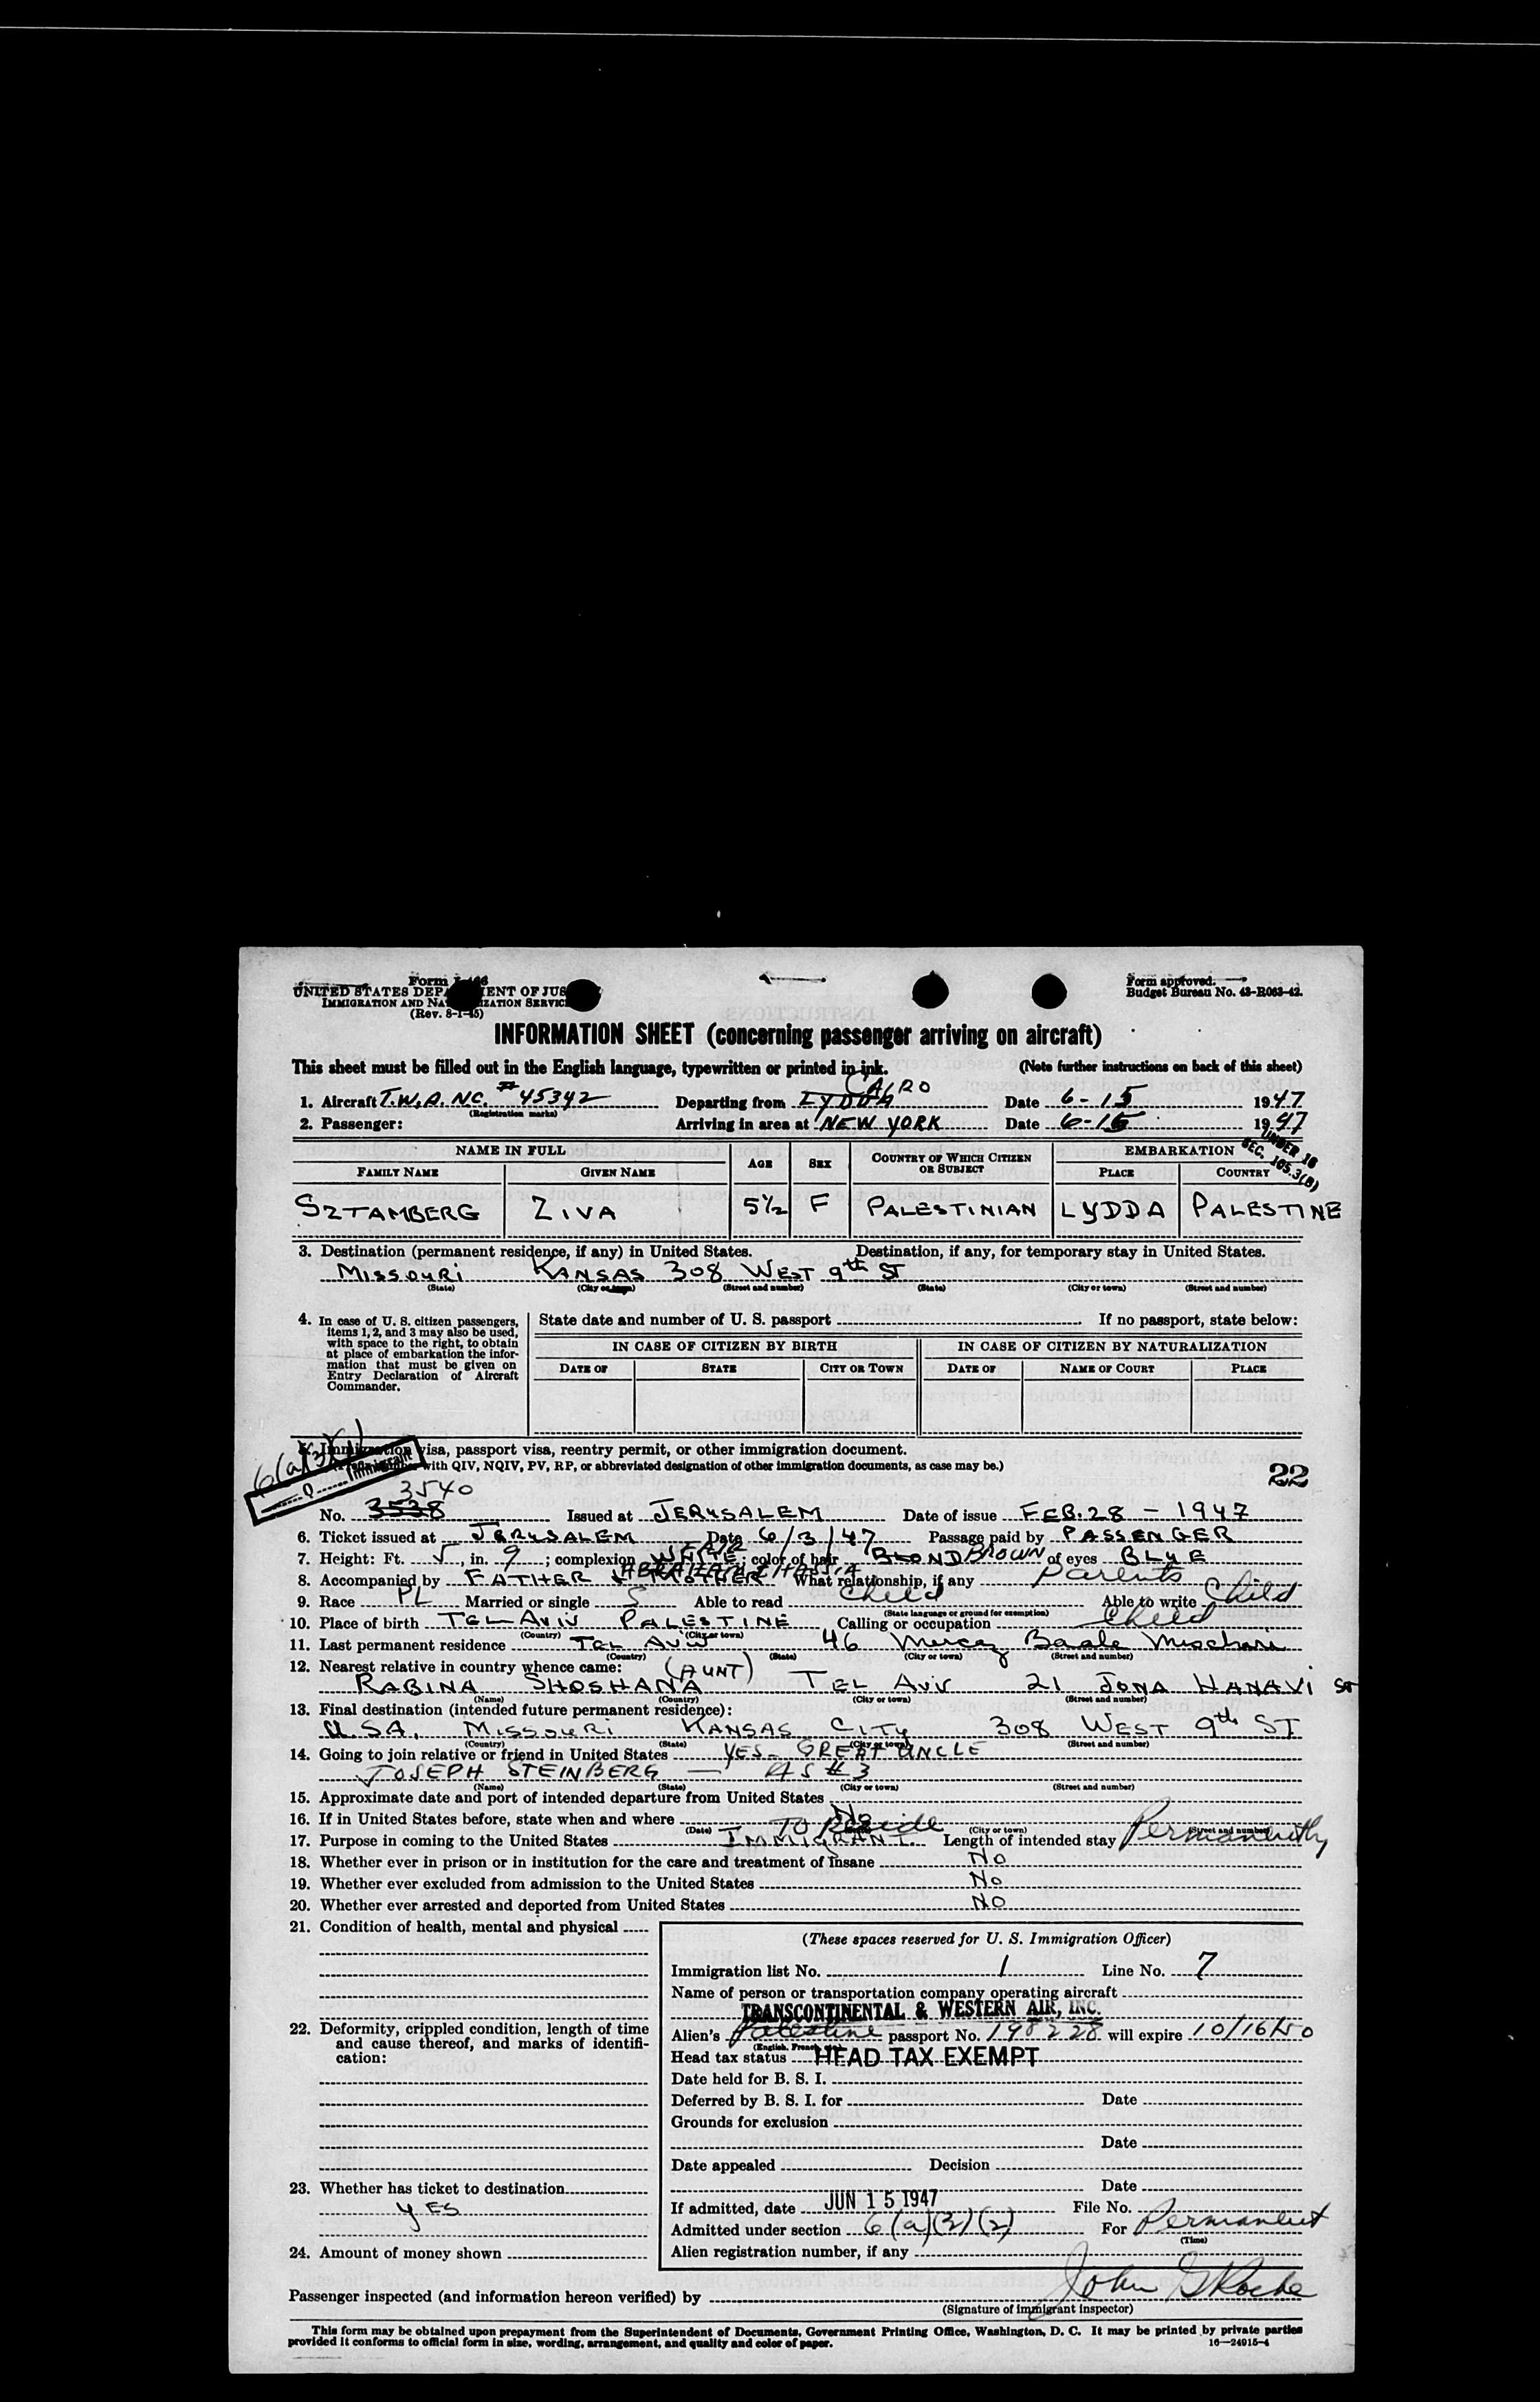 Form I-466
UNITED STATES DEPARTMENT OF JUSTICE
IMMIGRATION AND NATURALIZATION SERVICE
(Rev. 8-1-45)
Form approved.
Budget Bureau No. 43-R063-42.
INFORMATION SHEET (concerning passenger arriving on aircraft)
This sheet must be filled out in the English language, typewritten or printed in ink. (Note further instructions on back of this sheet)
CAIRO
1. Aircraft T.W.A. NC. # 45342 Departing from LYDDA Date 6-15 1947
(Registration marks)
2. Passenger: Arriving in area at NEW YORK Date 6-15 1947
UNDER 16
SEC. 105.3(B)
NAME IN FULL AGE SEX COUNTRY OF WHICH CITIZEN OR SUBJECT EMBARKATION
FAMILY NAME GIVEN NAME PLACE COUNTRY
SZTAMBERG ZIVA 5½ F PALESTINIAN LYDDA PALESTINE
3. Destination (permanent residence, if any) in United States. Destination, if any, for temporary stay in United States.
MISSOURI KANSAS 308 WEST 9th ST
(State) (City or town) (Street and number) (State) (City or town) (Street and number)
4. In case of U. S. citizen passengers, items 1, 2, and 3 may also be used, with space to the right, to obtain at place of embarkation the information that must be given on Entry Declaration of Aircraft Commander.
State date and number of U. S. passport If no passport, state below:
IN CASE OF CITIZEN BY BIRTH IN CASE OF CITIZEN BY NATURALIZATION
DATE OF STATE CITY OR TOWN DATE OF NAME OF COURT PLACE
5. Immigration visa, passport visa, reentry permit, or other immigration document.
with QIV, NQIV, PV, RP, or abbreviated designation of other immigration documents, as case may be.)
Q Immigrant
22
3540
No. 3538 Issued at JERUSALEM Date of issue FEB. 28 - 1947
6. Ticket issued at JERUSALEM Date 6/3/47 Passage paid by PASSENGER
FAIR
7. Height: Ft. 5, in. 9; complexion WHITE; color of hair BLOND BROWN of eyes BLUE
8. Accompanied by FATHER & MOTHER What relationship, if any Parents
9. Race PL Married or single S Able to read Child Able to write Child
(State language or ground for exemption)
10. Place of birth TEL AVIV PALESTINE Calling or occupation Child
(Country) (City or town)
11. Last permanent residence TEL AVIV 46 Mercaz Baale Mlachah
(Country) (State) (City or town) (Street and number)
12. Nearest relative in country whence came: (AUNT)
RABINA SHOSHANA TEL AVIV 21 JONA HANAVI ST
(Name) (Country) (City or town) (Street and number)
13. Final destination (intended future permanent residence):
U.S.A. MISSOURI KANSAS CITY 308 WEST 9th ST
(Country) (State) (City or town) (Street and number)
14. Going to join relative or friend in United States YES - GREAT UNCLE
JOSEPH STEINBERG — AS #3
(Name) (State) (City or town) (Street and number)
15. Approximate date and port of intended departure from United States
16. If in United States before, state when and where No
(Date) (City or town) (Street and number)
To Reside
17. Purpose in coming to the United States IMMIGRANT Length of intended stay Permanently
18. Whether ever in prison or in institution for the care and treatment of insane No
19. Whether ever excluded from admission to the United States No
20. Whether ever arrested and deported from United States NO
21. Condition of health, mental and physical
22. Deformity, crippled condition, length of time and cause thereof, and marks of identification:
23. Whether has ticket to destination
YES
24. Amount of money shown
(These spaces reserved for U. S. Immigration Officer)
Immigration list No. 1 Line No. 7
Name of person or transportation company operating aircraft
TRANSCONTINENTAL & WESTERN AIR, INC.
Alien's Palestine passport No. 198228 will expire 10/16/50
Head tax status HEAD TAX EXEMPT
Date held for B. S. I.
Deferred by B. S. I. for Date
Grounds for exclusion
Date
Date appealed Decision
Date
If admitted, date JUN 15 1947 File No.
Admitted under section 6(a)(3)(2) For Permanent
(Time)
Alien registration number, if any
Passenger inspected (and information hereon verified) by John G Roche
(Signature of immigrant inspector)
This form may be obtained upon prepayment from the Superintendent of Documents, Government Printing Office, Washington, D. C. It may be printed by private parties
provided it conforms to official form in size, wording, arrangement, and quality and color of paper. 16—24915-4